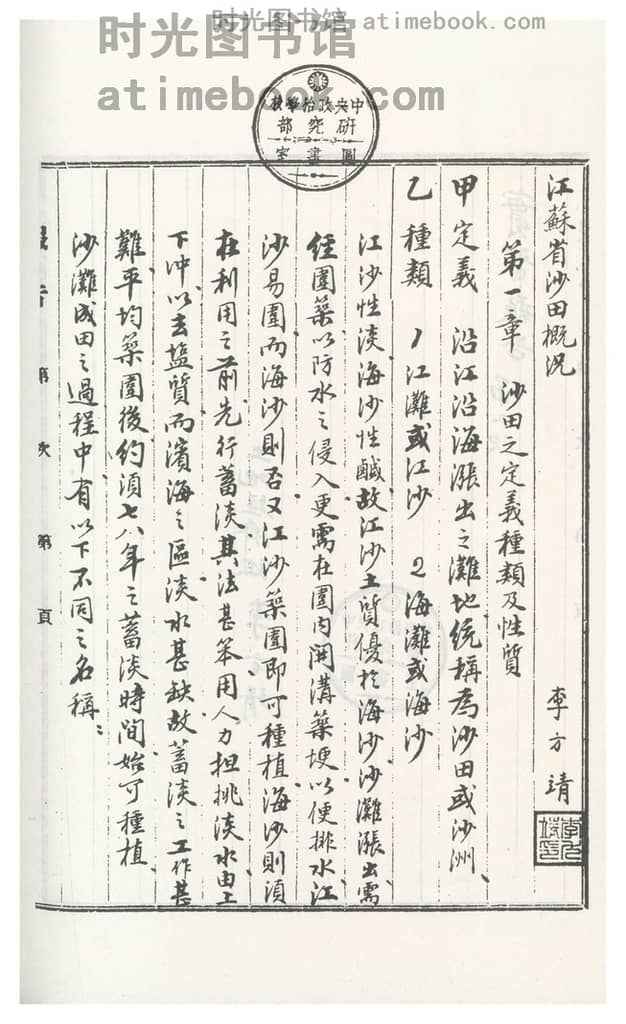 时光图书馆 - atimebook.com
时光图书馆
atimebook.com
中央政治學校
研究部
圖書室
江蘇省沙田概況
李方靖
第一章 沙田之定義種類及性質
甲 定義 沿江沿海漲出之灘地統稱為沙田或沙洲、
乙 種類 1 江灘或江沙 2 海灘或海沙
江沙性淡、海沙性鹹、故江沙土質優於海沙、沙灘漲出、需
經圍築以防水之侵入、更需在圍內開溝築埂以便排水、江
沙易圍、而海沙則否、又江沙築圍即可種植、海沙則須
在利用之前先行蓄淡、其法甚笨、用人力担挑淡水、由上
下冲、以去塩質、而濱海之區淡水甚缺、故蓄淡之工作甚
難、平均築圍後、約須七八年之蓄淡時間、始可種植、
沙灘成田之過程中、有以下不同之名稱：
第 次 第 頁